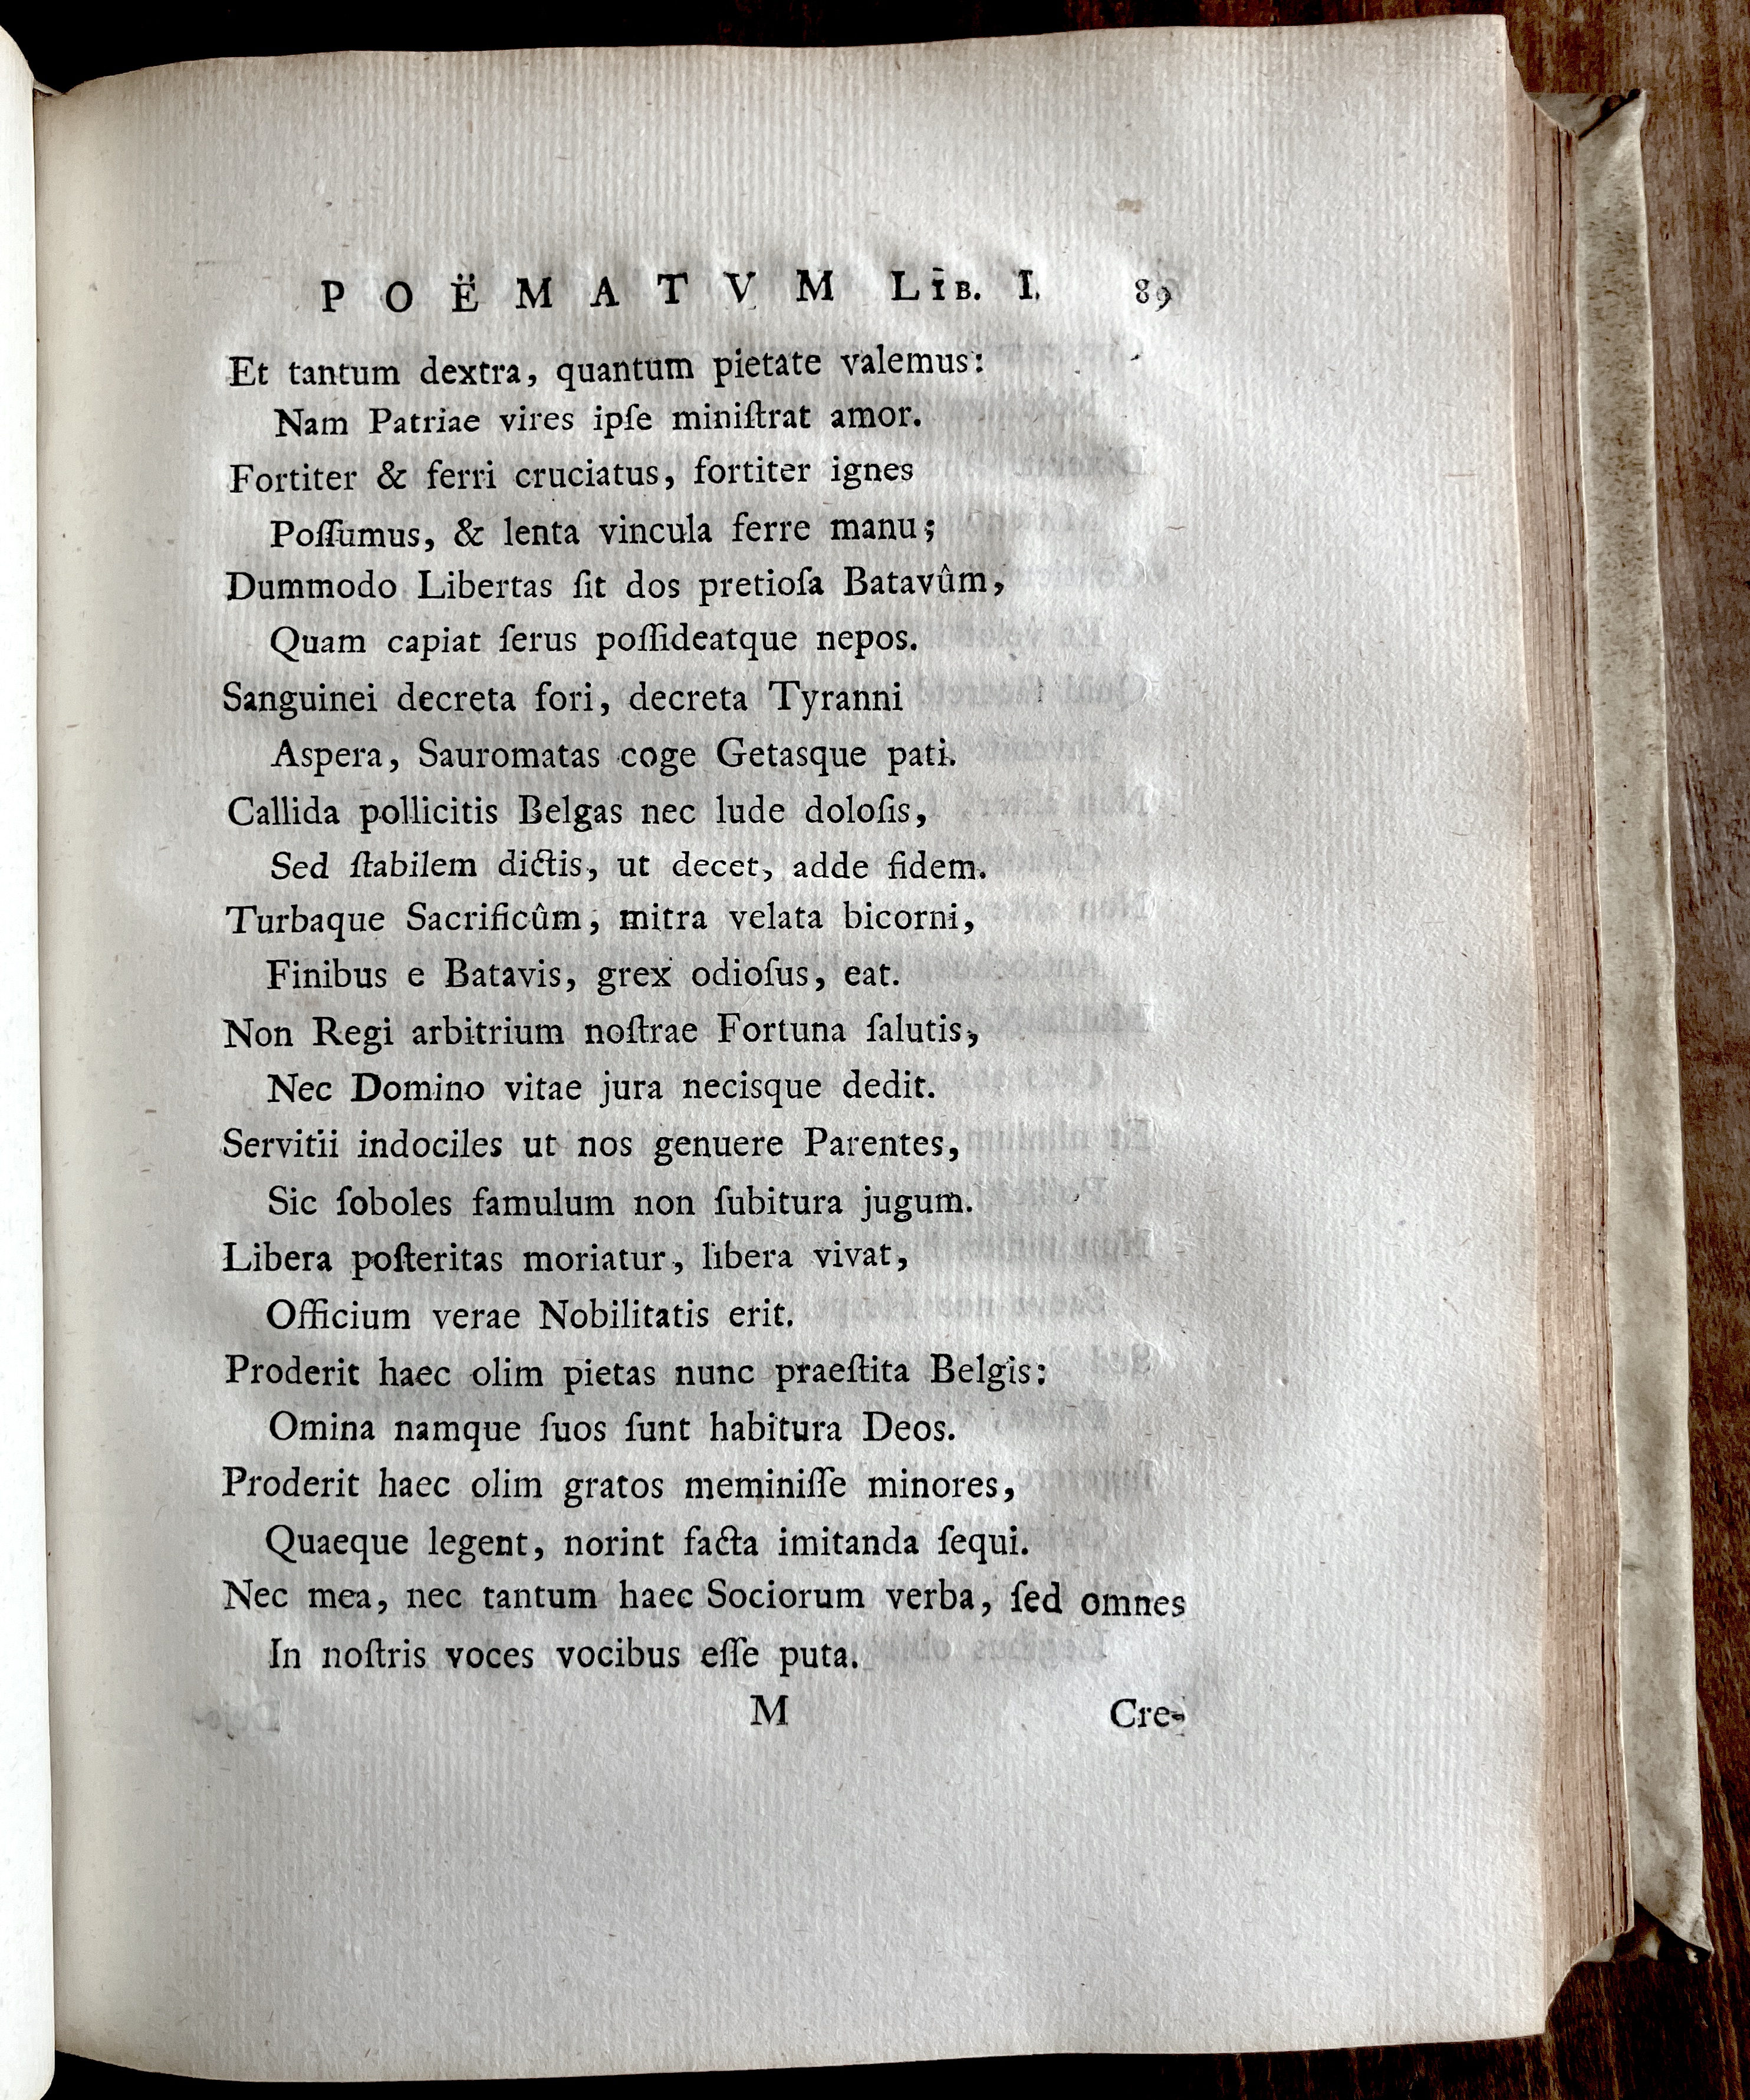 POËMATVM LIB. I. 89
Et tantum dextra, quantum pietate valemus:
Nam Patriae vires ipſe miniſtrat amor.
Fortiter & ferri cruciatus, fortiter ignes
Poſſumus, & lenta vincula ferre manu;
Dummodo Libertas ſit dos pretioſa Batavûm,
Quam capiat ſerus poſſideatque nepos.
Sanguinei decreta fori, decreta Tyranni
Aspera, Sauromatas coge Getasque pati.
Callida pollicitis Belgas nec lude doloſis,
Sed ſtabilem dictis, ut decet, adde fidem.
Turbaque Sacrificûm, mitra velata bicorni,
Finibus e Batavis, grex odioſus, eat.
Non Regi arbitrium noſtrae Fortuna ſalutis,
Nec Domino vitae jura necisque dedit.
Servitii indociles ut nos genuere Parentes,
Sic ſoboles famulum non ſubitura jugum.
Libera poſteritas moriatur, libera vivat,
Officium verae Nobilitatis erit.
Proderit haec olim pietas nunc praeſtita Belgis:
Omina namque ſuos ſunt habitura Deos.
Proderit haec olim gratos meminiſſe minores,
Quaeque legent, norint facta imitanda ſequi.
Nec mea, nec tantum haec Sociorum verba, ſed omnes
In noſtris voces vocibus eſſe puta.
M Cre-